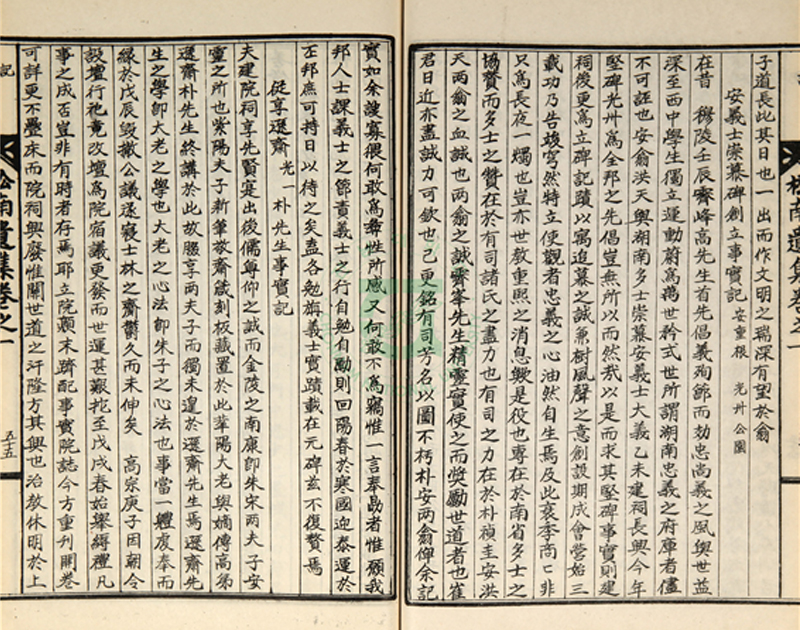 子道長此其日也一出而作文明之瑞深有望於翁
安義士崇慕碑創立事實記 安重根 光州公園
在昔 穆陵壬辰霽峰高先生首先倡義殉節而効忠尚義之風與世益
深至西中學生獨立運動蔚爲萬世矜式世所謂湖南忠義之府庫者儘
不可誣也安翁洪天與湖南多士崇慕安義士大義乙未建祠長興今年
堅碑光州爲全邦之先倡豈無所以而然哉以是而求其堅碑事實則建
祠後更爲立碑記蹟以寓追慕之誠兼樹風聲之意創設期成會營始三
載功乃告竣穹然特立使觀者忠義之心油然自生焉及此衰季商㠯非
只爲長夜一燭也豈亦世教重熙之消息歟是役也專在於南省多士之
協贊而多士之贊在於有司諸氏之盡力也有司之力在於朴禎圭安洪
天兩翁之血誠也兩翁之誠霽峯先生精靈實使之而奬勵世道者也崔
君日近亦盡誠力可欽也已更銘有司芳名以圖不朽朴安兩翁俾余記
實如余謏寡猥何敢爲彜性所感又何敢不爲竊惟一言奉勗者惟願我
邦人士課義士之節責義士之行自勉自勵則回陽春於寒國迎泰運於
否邦庶可持日以待之矣盍各勉旃義士實蹟載在元碑玆不復贅焉
從享遯齋 光一 朴先生事實記
夫建院祠享先賢寔出後儒尊仰之誠而金陵之南康卽朱宋兩夫子妥
靈之所也紫陽夫子新筆敬齋箴刻板藏置於此華陽大老與嫡傳高弟
遯齋朴先生終講於此故腏享兩夫子而獨未遑於遯齋先生焉遯齋先
生之學卽大老之學也大老之心法卽朱子之心法也事當一軆虔奉而
緣於戊辰毁撤公議遂寢士林之齎鬱久而未伸矣 高宗庚子因朝令
設壇行祀竟改壇爲院宿議更發而世運甚艱拕至戊戌春始擧縟禮凡
事之成否豈非有時者存焉耶立院顚末躋配事實院誌今方重刊開卷
可詳更不疊床而院祠興廢惟關世道之汙隆方其興也治敎休明於上
記
松南遺集卷之一
五十五
松南遺集卷之一